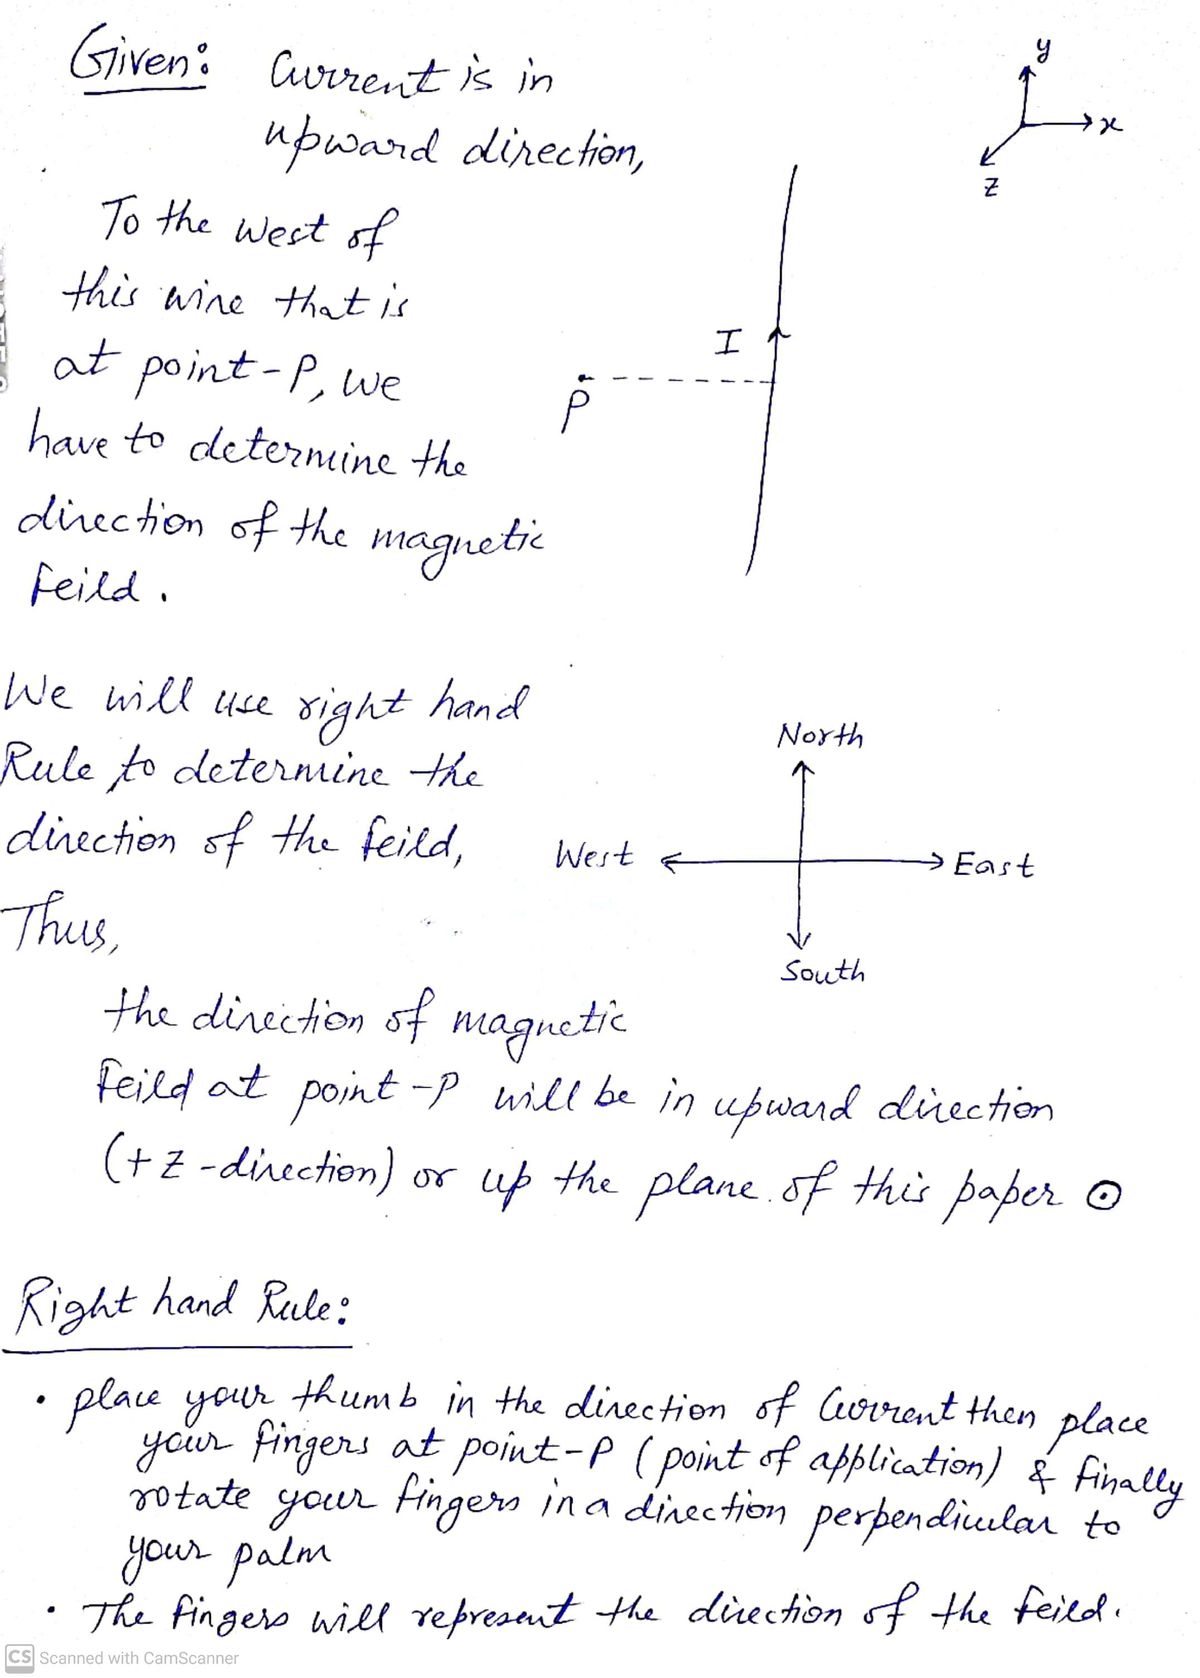 Given: Current is in
upward direction,
y
x
z
To the west of
this wire that is
at point-P, we
have to determine the
direction of the magnetic
feild.
I
P
We will use right hand
Rule to determine the
direction of the feild,
Thus,
North
West
East
South
the direction of magnetic
feild at point-P will be in upward direction
(+z-direction) or up the plane of this paper ⊙
Right hand Rule:
• place your thumb in the direction of Current then place
your fingers at point-P (point of application) & finally
rotate your fingers in a direction perpendicular to
your palm
• The fingers will represent the direction of the feild.
CS Scanned with CamScanner